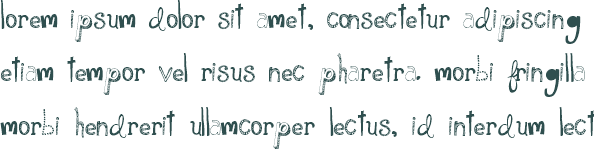 lorem ipsum dolor sit amet, consectetur adipiscing
etiam tempor vel risus nec pharetra. morbi fringilla
morbi hendrerit ullamcorper lectus, id interdum lect